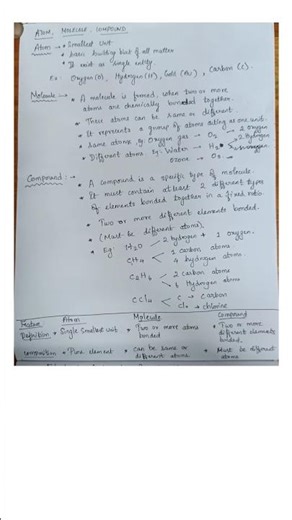 ATOM, MOLECULE, COMPOUND
Atom → • Smallest unit.
• basic building blist of all matter
• It exist as single entity.
Ex: Oxygen (O), Hydrogen (H), Gold (Au), Carbon (C).
Molecule → • A molecule is formed when two or more
atoms are chemically bonded together.
• These atoms can be same or different.
• It represents a group of atoms acting as one unit.
• Same atoms, Eg: Oxygen gas → O2 → 2 Oxygen
• Different atoms Eg: Water → H2O 2 Hydrogen
Ozone → O3
Compound :- → • A compound is a specific type of molecule.
• It must contain atleast 2 different types
of elements bonded together in a fixed ratio.
• Two or more different elements bonded.
• (Must be different atoms).
• Eg: H2O 2 hydrogen + 1 oxygen.
CH4 1 Carbon atoms
4 hydrogen atoms.
C2H6 2 Carbon atoms
6 Hydrogen atoms
CCl4 C → Carbon
Cl4 → chlorine
Feature Atom Molecule Compound
Definition • Single Smallest unit • Two or more atoms bonded • Two or more different elements bonded.
Composition • Pure element • can be same or different atoms. • Must be different atoms